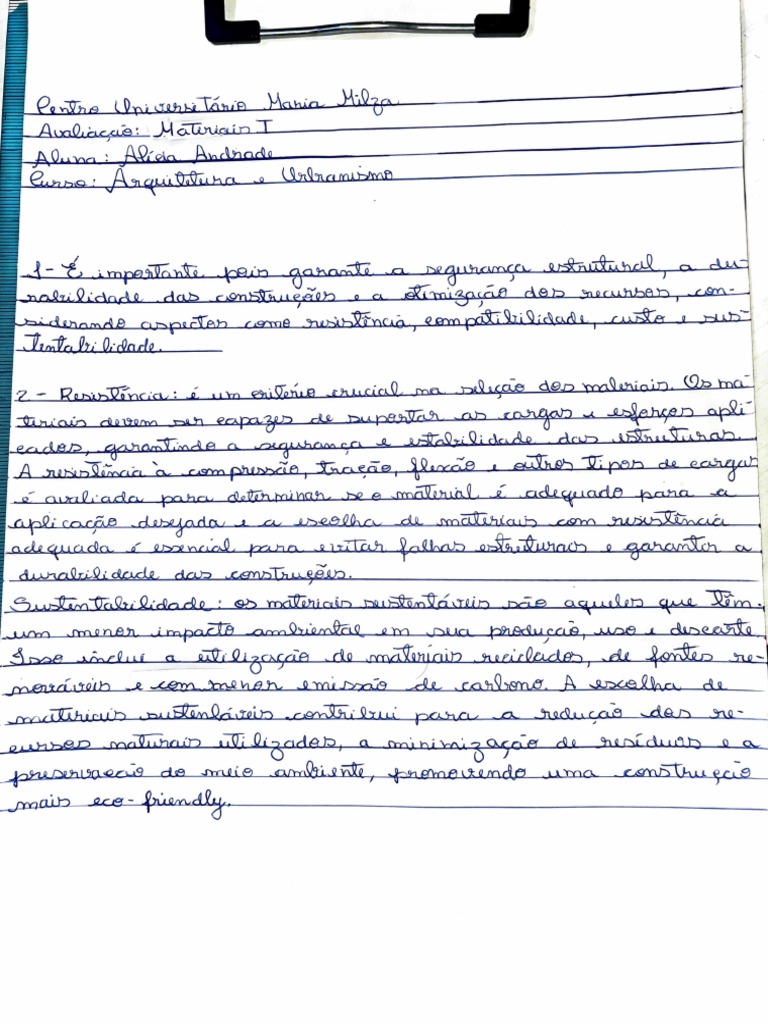 Centro Universitário Maria Milza
Avaliação: Materiais I
Aluna: Alícia Andrade
Curso: Arquitetura e Urbanismo
1- É importante pois garante a segurança estrutural, a du-
rabilidade das construções e a otimização dos recursos, con-
siderando aspectos como resistência, compatibilidade, custo e sus-
tentabilidade.
2 - Resistência: é um critério crucial na seleção dos materiais. Os ma-
teriais devem ser capazes de suportar as cargas e esforços apli-
cados, garantindo a segurança e estabilidade das estruturas.
A resistência à compressão, tração, flexão e outros tipos de cargas
é avaliada para determinar se o material é adequado para a
aplicação desejada e a escolha de materiais com resistência
adequada é essencial para evitar falhas estruturais e garantir a
durabilidade das construções.
Sustentabilidade: os materiais sustentáveis são aqueles que têm
um menor impacto ambiental em sua produção, uso e descarte.
Isso inclui a utilização de materiais reciclados, de fontes re-
nováveis e com menor emissão de carbono. A escolha de
materiais sustentáveis contribui para a redução dos re-
cursos naturais utilizados, a minimização de resíduos e a
preservação do meio ambiente, promovendo uma construção
mais eco-friendly.